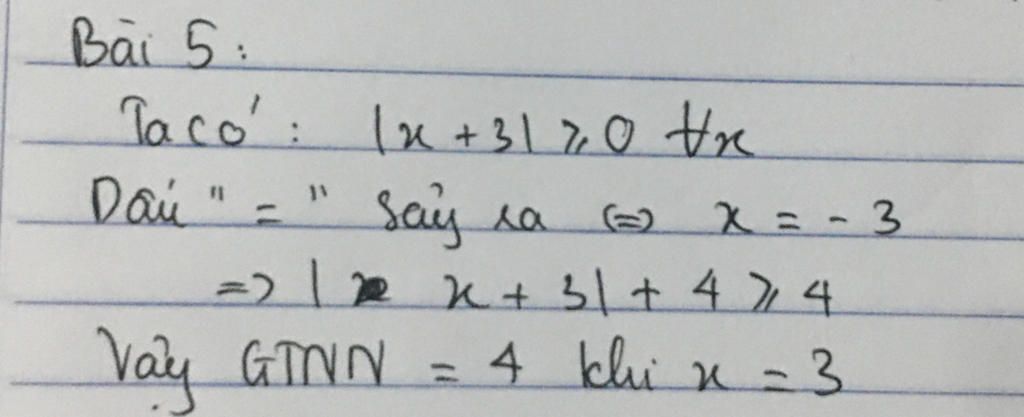 Bài 5:
Ta có: |x + 3| ⩾ 0 ∀x
Dấu "=" sảy ra <=> x = - 3
=> | x + 3| + 4 ⩾ 4
Vậy GTNN = 4 khi x = 3